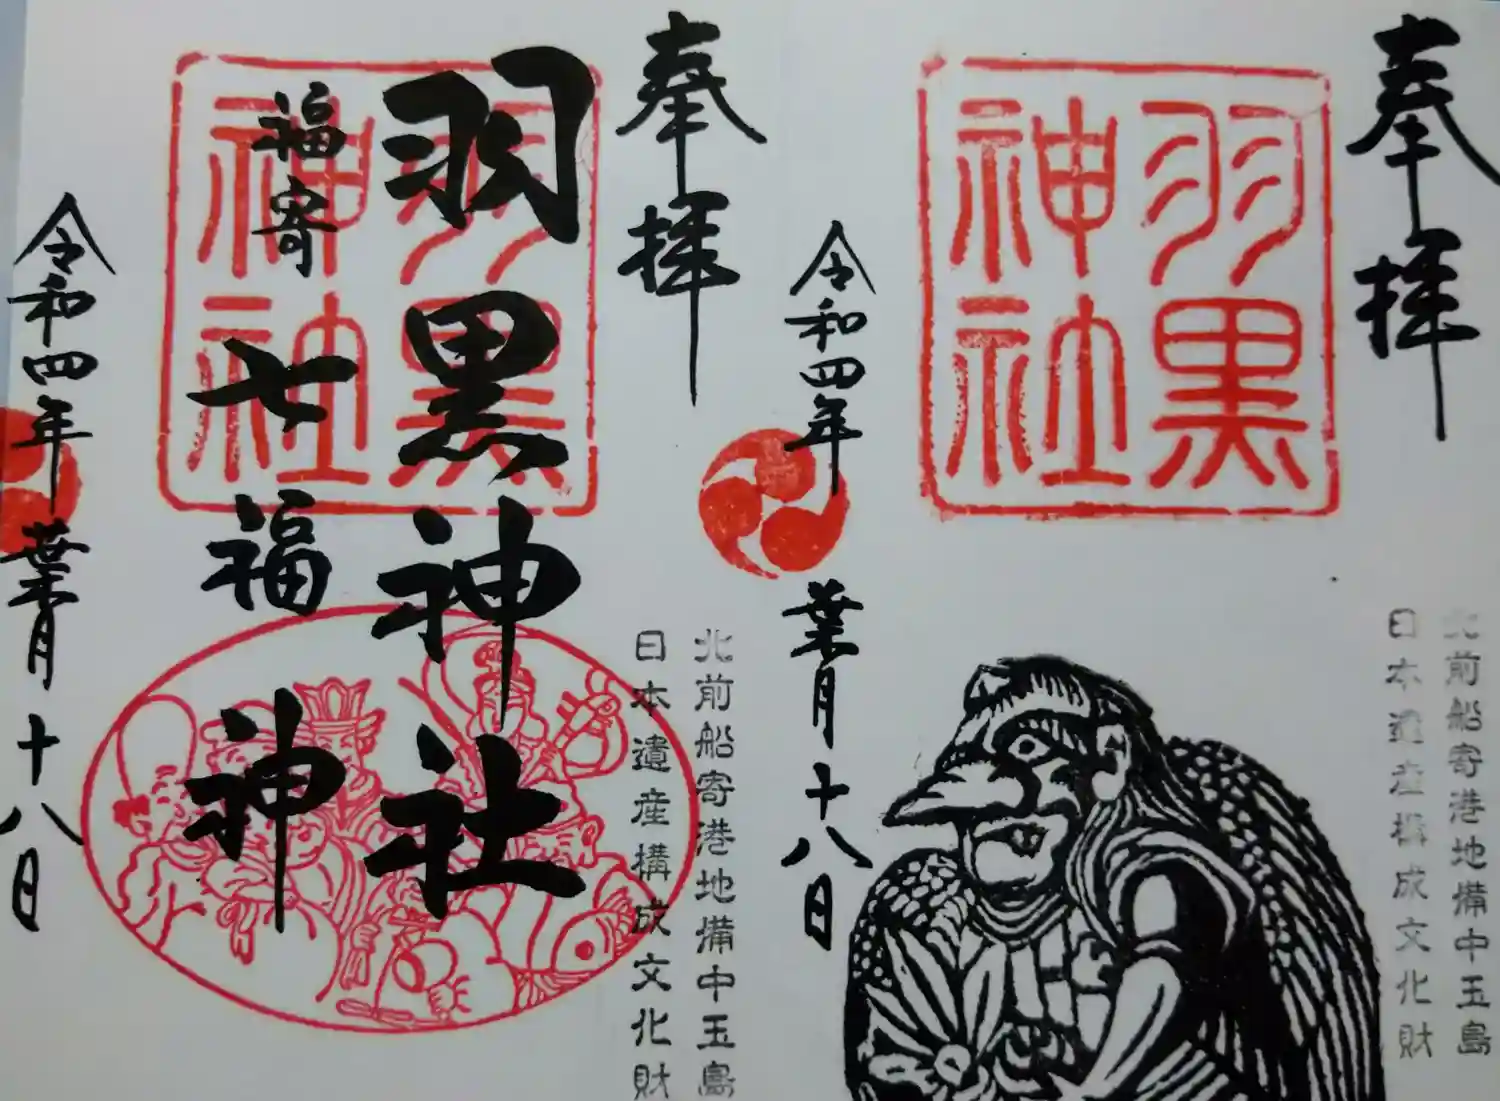 奉拝
羽黒神社
北前船寄港地備中玉島
日本遺産構成文化財
令和四年葉月十八日
奉拝
羽黒神社
羽黒神社
福寄七福神
北前船寄港地備中玉島
日本遺産構成文化財
令和四年葉月十八日